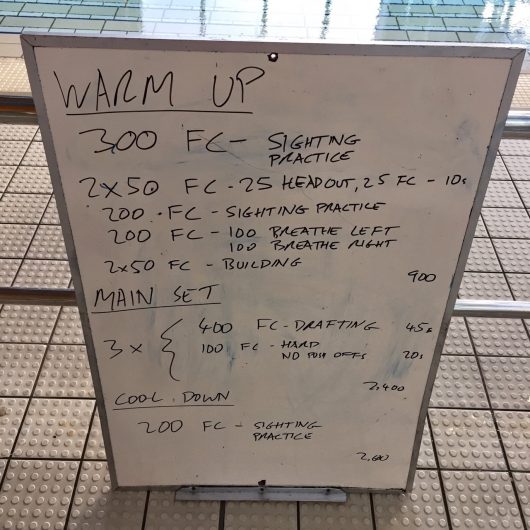 WARM UP
300 FC - SIGHTING
PRACTICE
2x50 FC - 25 HEAD OUT, 25 FC - 10s
200 FC - SIGHTING PRACTICE
200 FC - 100 BREATHE LEFT
100 BREATHE RIGHT
2x50 FC - BUILDING
900
MAIN SET
3 x { 400 FC - DRAFTING 45s
100 FC - HARD 20s
NO PUSH OFFS
2,400
COOL DOWN
200 FC - SIGHTING
PRACTICE
2,600